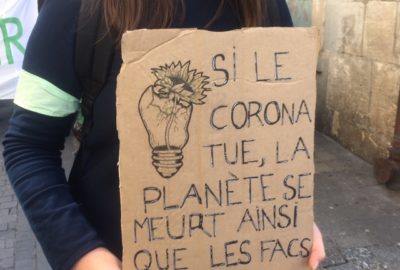 SI LE
CORONA
TUE, LA
PLANÈTE SE
MEURT AINSI
QUE LES FACS